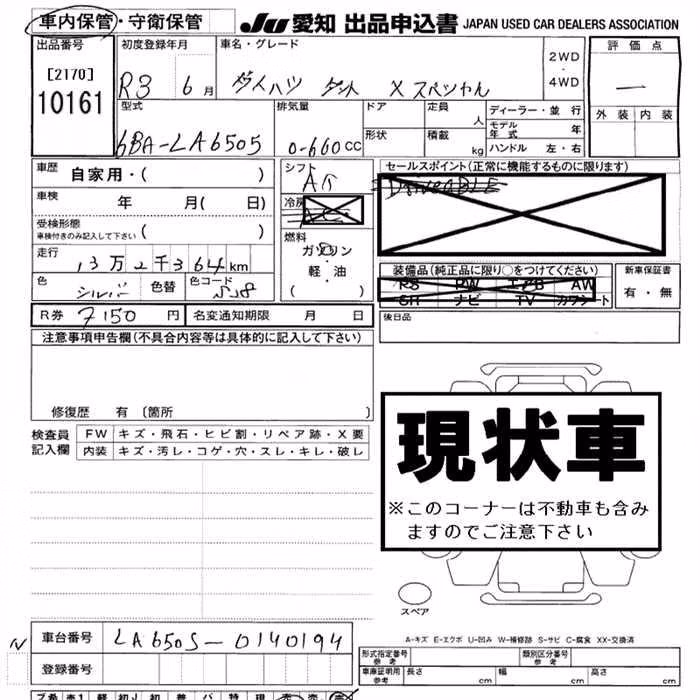 車内保管・守衛保管 JU 愛知 出品申込書 JAPAN USED CAR DEALERS ASSOCIATION
出品番号 初度登録年月 車名・グレード 2WD・4WD 評価点
[2170]
10161 R3 6月 ダイハツ タント Xスペシャル —
型式 排気量 ドア 定員 人 ディーラー・並行 外装 内装
6BA-LA650S 0-660CC 形状 積載 kg モデル年式 年
ハンドル 左・右
車歴 自家用・( ) シフト AT セールスポイント(正常に機能するものに限ります)
車検 年 月( 日) 冷房 DRIVEABLE
受検形態 車検付きのみ記入して下さい ( ) 燃料
走行 13万2千364km ガソリン
軽・油
( )
装備品(純正品に限り○をつけてください) 新車保証書
色 シルバー 色替 色コード S28 PS PW エアB AW 有・無
SR ナビ TV カワシート
R券 7150円 名変通知期限 月 日 後日品
注意事項申告欄(不具合内容等は具体的に記入して下さい)
修復歴 有 [箇所 ]
現状車
※このコーナーは不動車も含み
ますのでご注意下さい
検査員記入欄 FW キズ・飛石・ヒビ割・リペア跡・X要
内装 キズ・汚レ・コゲ・穴・スレ・キレ・破レ
スペア
A-キズ E-エクボ U-凹み W-補修跡 S-サビ C-腐食 XX-交換済
N 車台番号 LA650S-0140194
登録番号
型式指定番号 参考 類別区分番号 参考
車庫証明用 参考 長さ cm 幅 cm 高さ cm